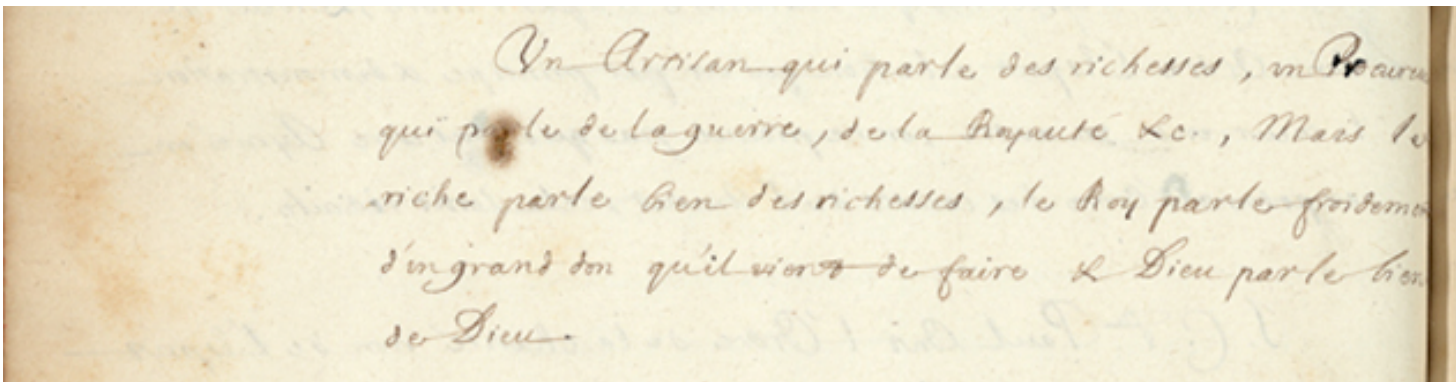 Un Artisan qui parle des richesses, un Procureur
qui parle de la guerre, de la Royauté &c., Mais le
riche parle bien des richesses, le Roy parle froidement
d'un grand don qu'il vient de faire & Dieu parle bien
de Dieu.